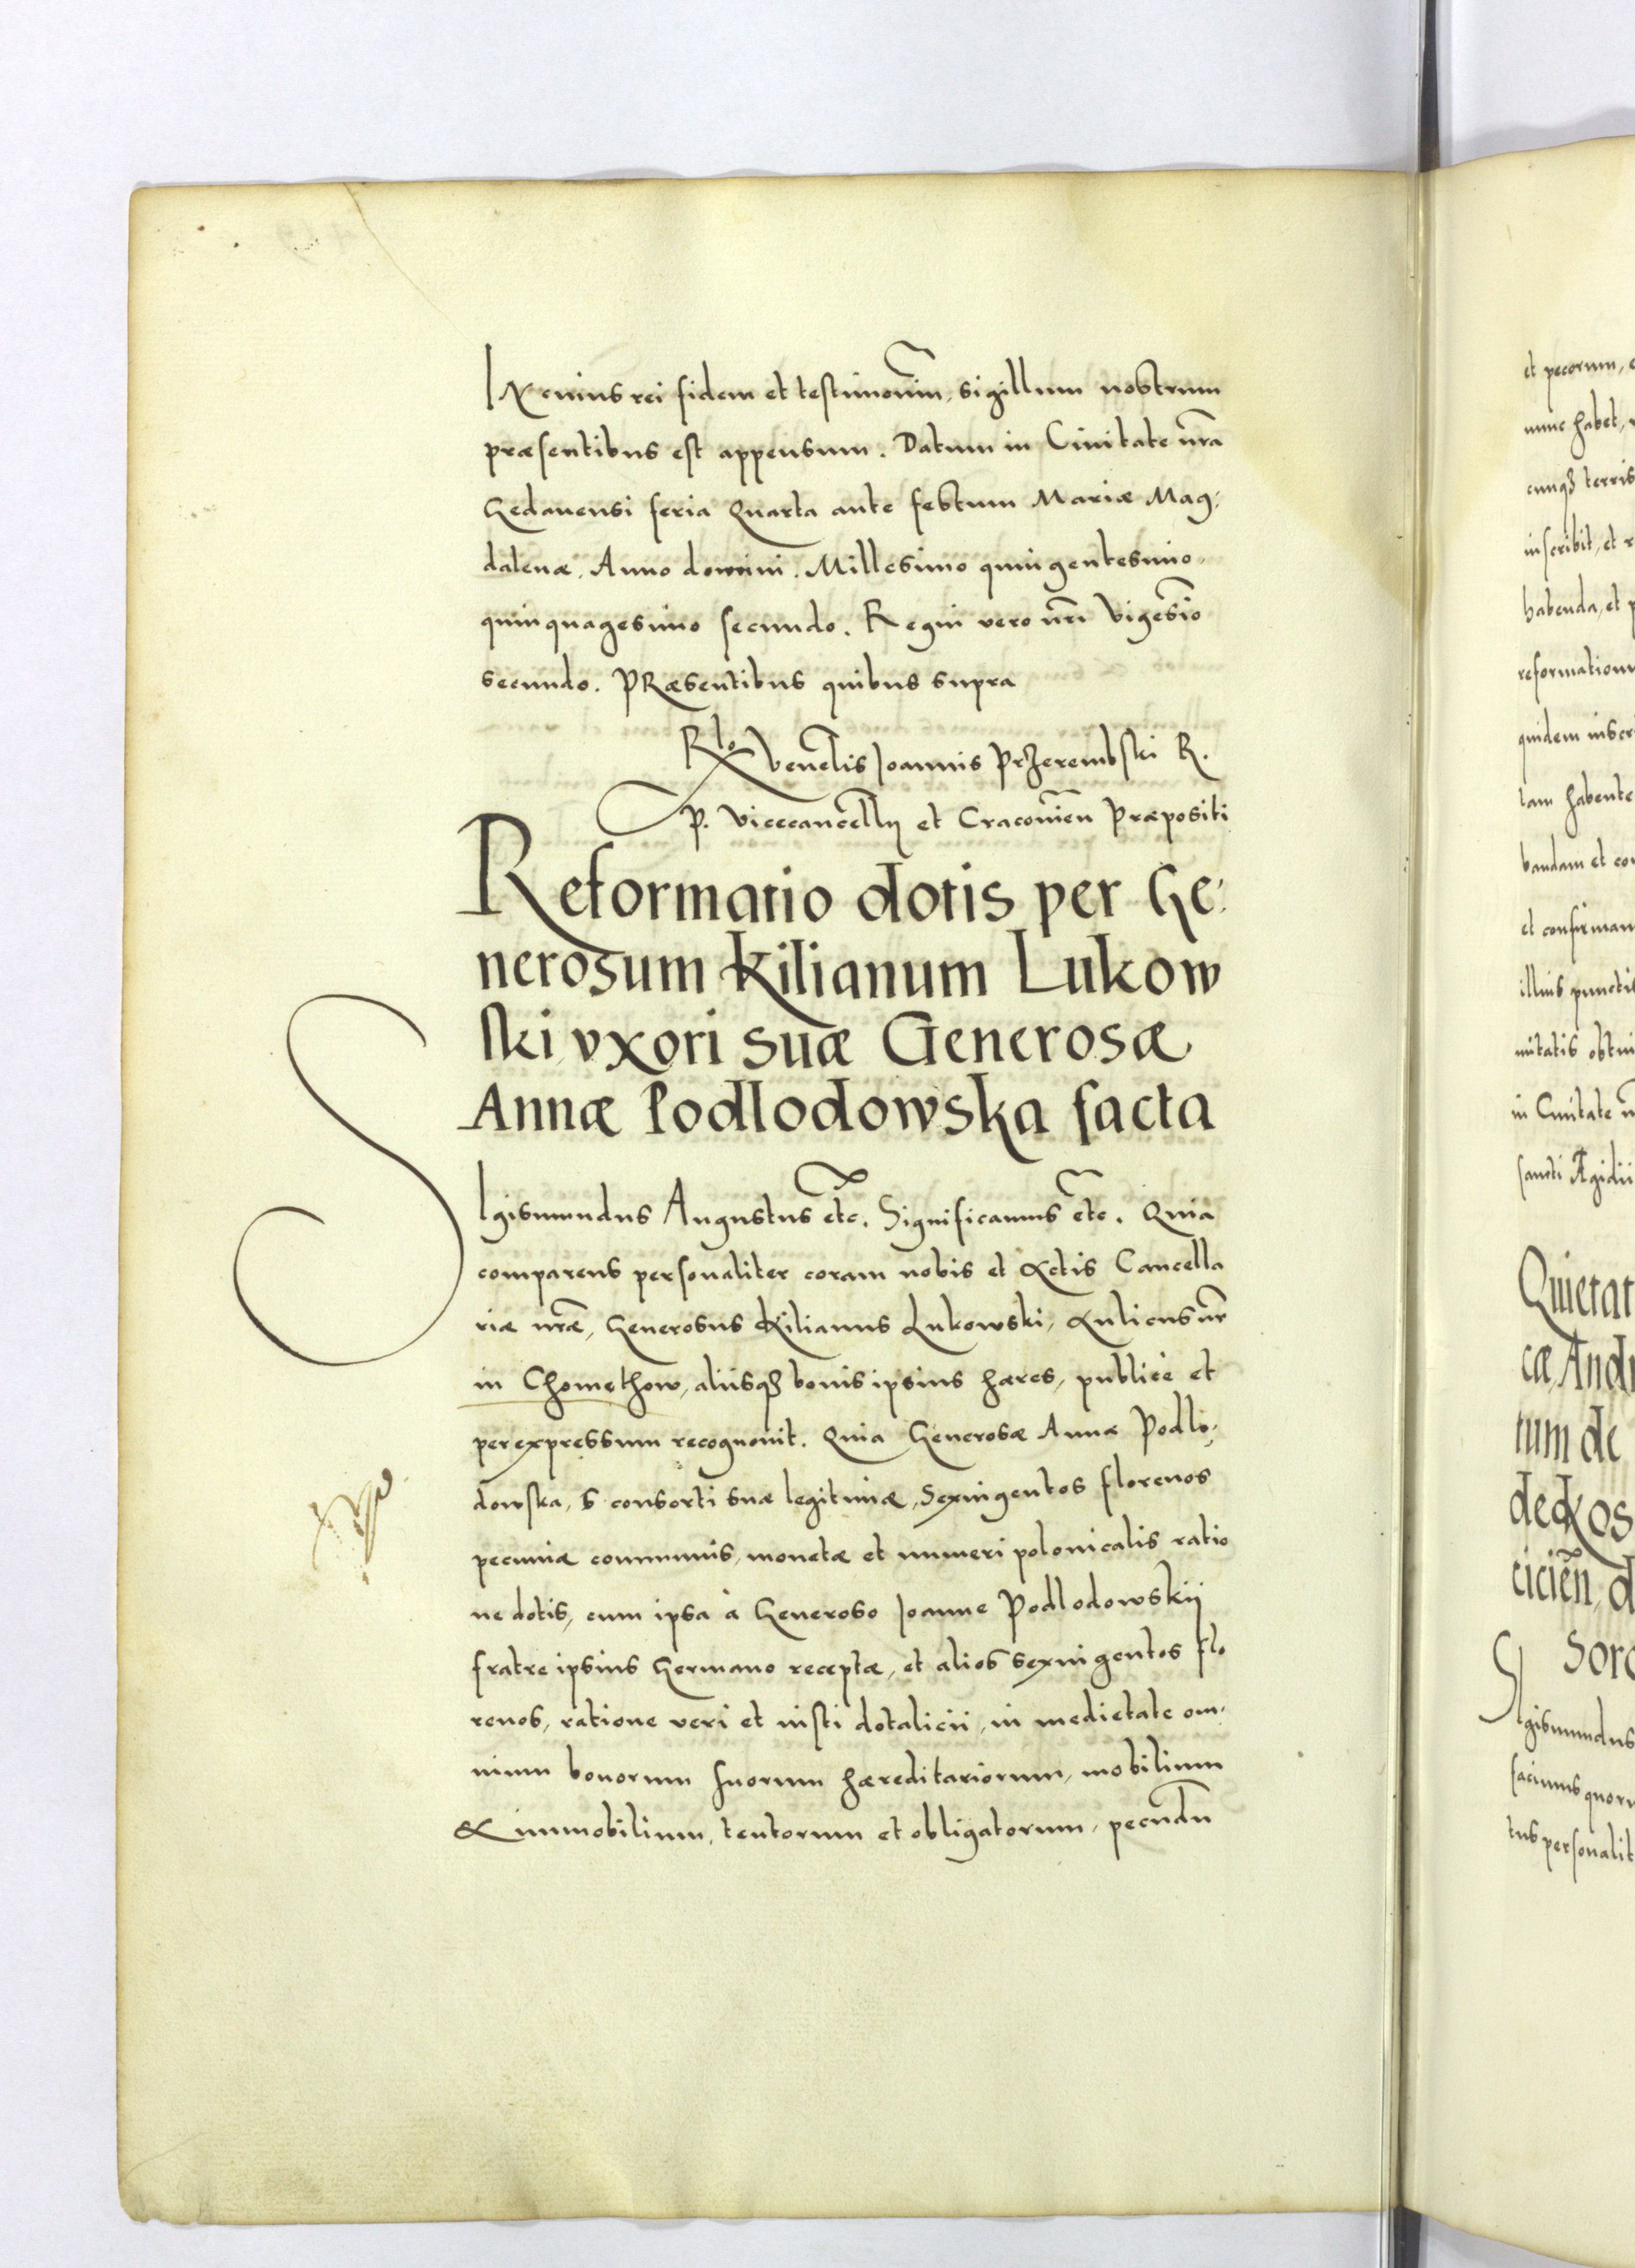 IN cuius rei fidem et testimoniū, sigillum nostrum
præsentibus est appensum. Datum in Ciuitate nr̃a
Gedanensi feria Quarta ante festum Mariæ Mag-
dalenæ. Anno domini. Millesimo quingentesimo.
quinquagesimo secundo. Regni vero nr̃i vigesīo
secundo. PRæsentibus quibus supra
Rlo venelis Joannis Przerembski R.
P. vicecancellij et Cracouień Præpositi
Reformatio dotis per Ge-
nerosum Kilianum Lukow
ski, vxori suæ Generosæ
Annæ Podlodowska facta
SIgismundus Augustus etc̃. Significamus etc̃. Quia
comparens personaliter coram nobis et Actis Cancella
riæ nr̃æ, Generosus Kilianus Lukowski, Aulicus nr̃
in Chomethow, aliisqꝫ bonis ipsius hæres, publicè et
per expressum recognouit. Quia Generosæ Annæ Podlo-
dowska, consorti suæ legitimæ, Sexingentos florenos
pecuniæ communis, monetæ et numeri polonicalis ratio
ne dotis, cum ipsa à Generoso Joanne Podlodowskii
fratre ipsius Germano receptæ, et alios sexingentos flo
renos, ratione veri et iusti dotalicii, in medietate om-
nium bonorum suorum hæreditariorum, mobilium
& immobilium, tentorum et obligatorum, pecunđu
et pecorum,
nunc habet,
cunqꝫ terris
inscribit, et
habenda, et
reformationem
quidem inscr
tam habente
bandam et con
et confirman
illius punctis
mitatis obtin
in Ciuitate
sancti Ægidii
Quietat
cæ, And
tum de
deckos
cicień, d
Soro
SIgismundus
facimus quoru
tus personalit